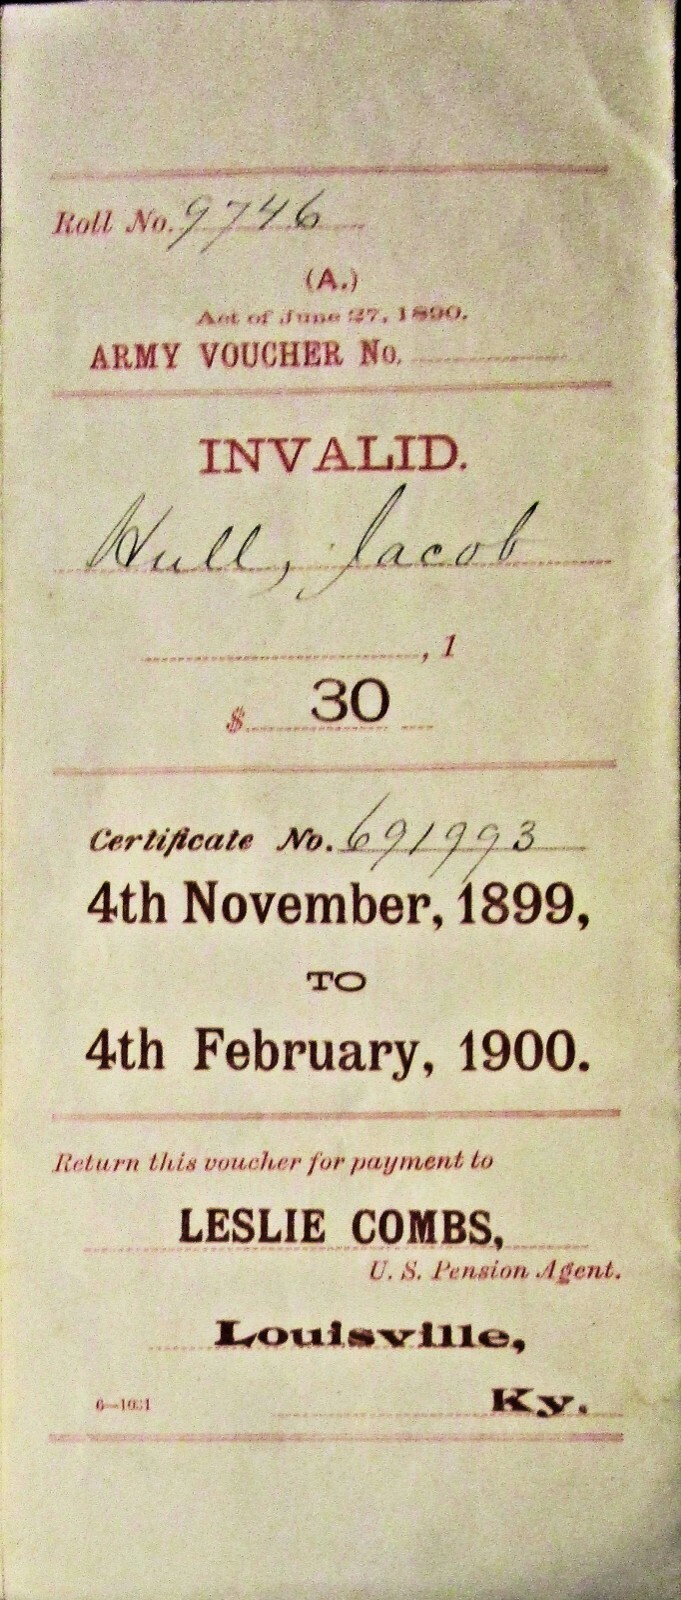 Roll No. 9746
(A.)
Act of June 27, 1890.
ARMY VOUCHER No.
INVALID.
Hull, Jacob
, 1
$ 30
Certificate No. 691993
4th November, 1899,
TO
4th February, 1900.
Return this voucher for payment to
LESLIE COMBS,
U. S. Pension Agent.
Louisville,
Ky.